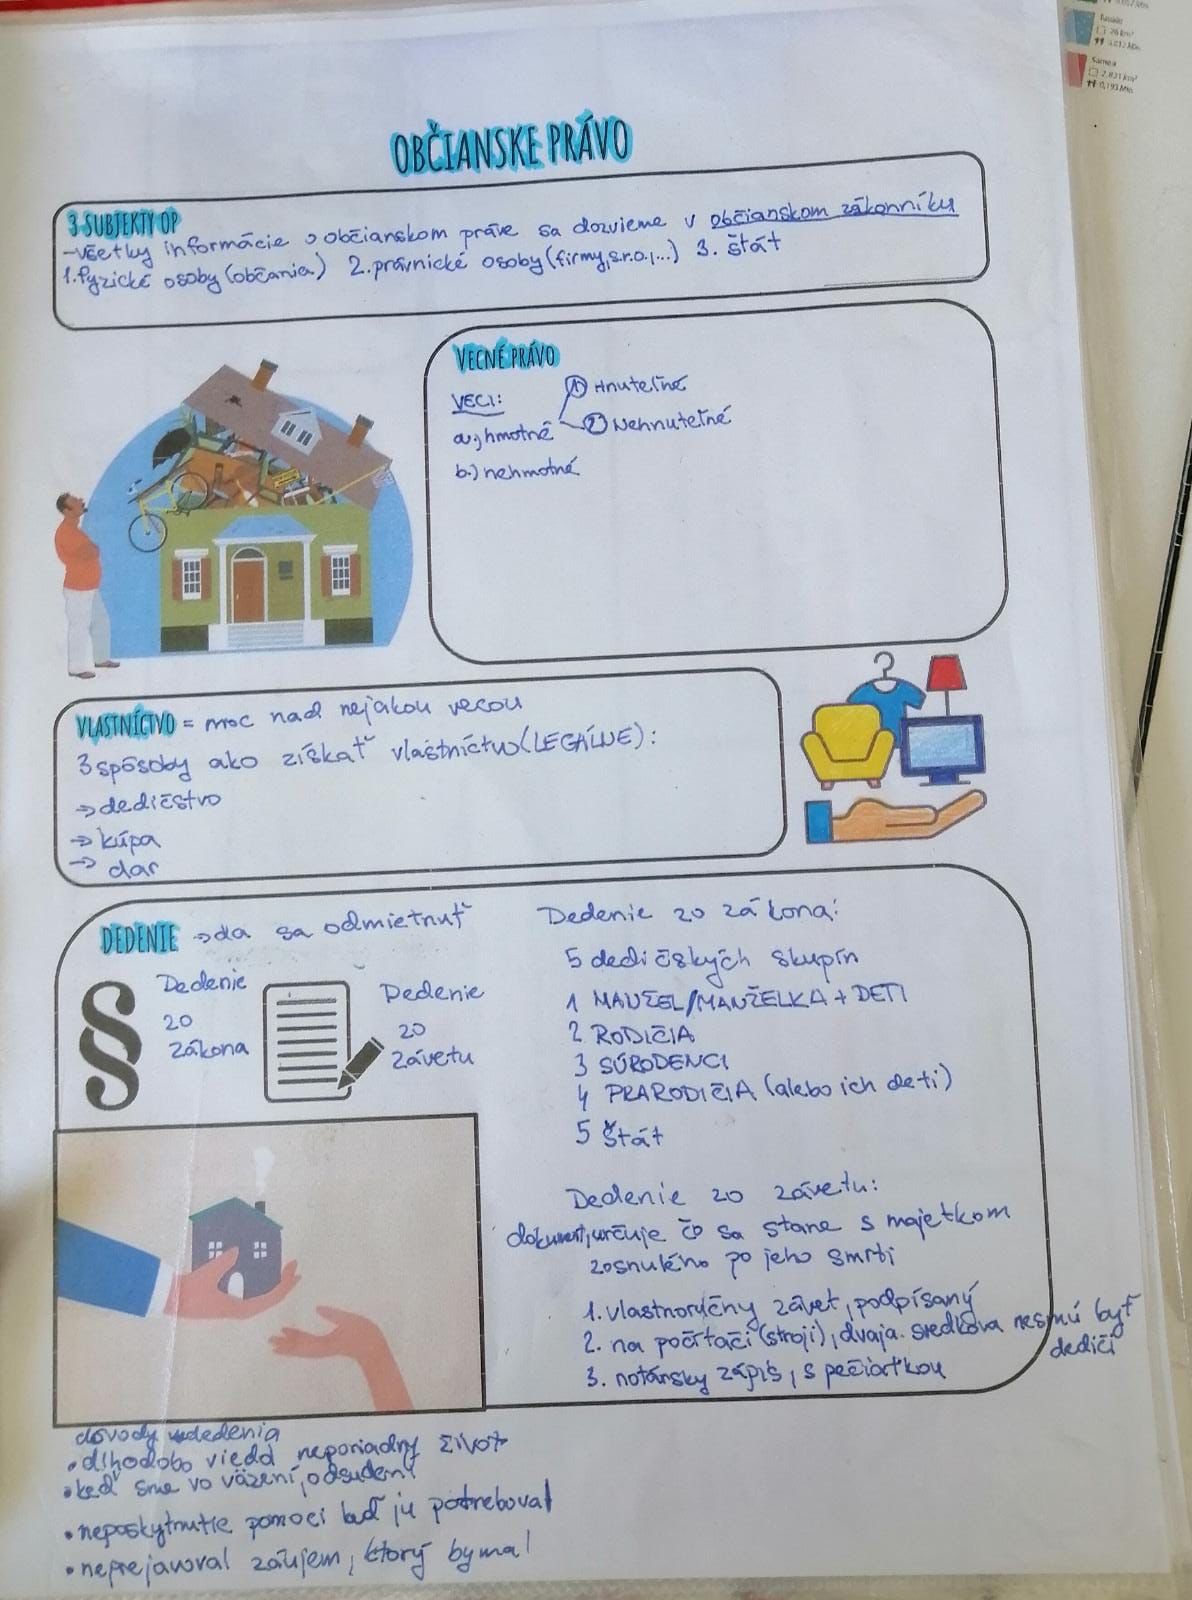 Tuvalu
26 km²
0,012 Mln.
Samoa
2.831 km²
0,193 Mln.
OBČIANSKE PRÁVO
3 SUBJEKTY OP
-všetky informácie o občianskom práve sa dozvieme v občianskom zákonníku
1. fyzické osoby (občania) 2. právnické osoby (firmy, s.r.o., ...) 3. štát
VECNÉ PRÁVO
VECI:
1 Hnuteľné
a.) hmotné
2 Nehnuteľné
b.) nehmotné
VLASTNÍCTVO = moc nad nejakou vecou
3 spôsoby ako získať vlastníctvo (LEGÁLNE):
→ dedičstvo
→ kúpa
→ dar
DEDENIE → da sa odmietnuť
Dedenie
zo
zákona
Dedenie
zo
závetu
Dedenie zo zákona:
5 dedičských skupín
1 MANŽEL/MANŽELKA + DETI
2 RODIČIA
3 SÚRODENCI
4 PRARODIČIA (alebo ich deti)
5 štát
Dedenie zo závetu:
dokument, určuje čo sa stane s majetkom
zosnulého po jeho smrti
1. vlastnoručný závet, podpísaný
2. na počítači (stroji), dvaja svedkova nesmú byť
dediči
3. notársky zápis, s pečiatkou
dôvody dedenia
• dlhodobo viedol neporiadny život
• keď sme vo väzení, odsudený
• neposkytnutie pomoci keď ju potreboval
• neprejavoval záujem, ktorý by mal